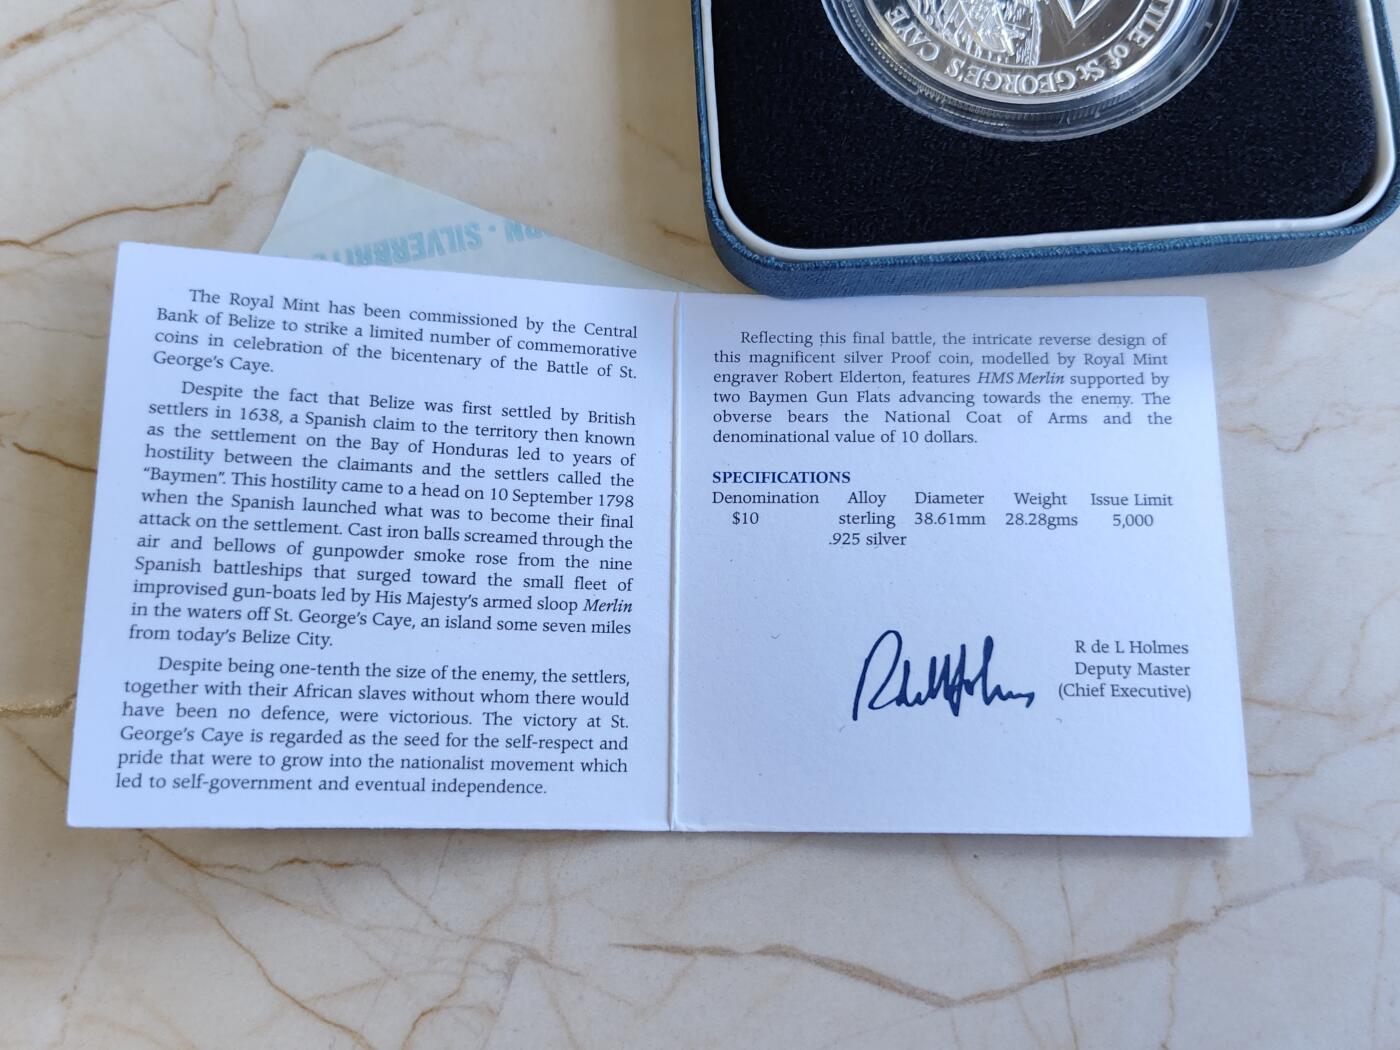 TTLE of St GEORGE'S CAYE
RN · SILVERBRITE
The Royal Mint has been commissioned by the Central
Bank of Belize to strike a limited number of commemorative
coins in celebration of the bicentenary of the Battle of St.
George's Caye.
Despite the fact that Belize was first settled by British
settlers in 1638, a Spanish claim to the territory then known
as the settlement on the Bay of Honduras led to years of
hostility between the claimants and the settlers called the
"Baymen". This hostility came to a head on 10 September 1798
when the Spanish launched what was to become their final
attack on the settlement. Cast iron balls screamed through the
air and bellows of gunpowder smoke rose from the nine
Spanish battleships that surged toward the small fleet of
improvised gun-boats led by His Majesty's armed sloop Merlin
in the waters off St. George's Caye, an island some seven miles
from today's Belize City.
Despite being one-tenth the size of the enemy, the settlers,
together with their African slaves without whom there would
have been no defence, were victorious. The victory at St.
George's Caye is regarded as the seed for the self-respect and
pride that were to grow into the nationalist movement which
led to self-government and eventual independence.
Reflecting this final battle, the intricate reverse design of
this magnificent silver Proof coin, modelled by Royal Mint
engraver Robert Elderton, features HMS Merlin supported by
two Baymen Gun Flats advancing towards the enemy. The
obverse bears the National Coat of Arms and the
denominational value of 10 dollars.
SPECIFICATIONS
Denomination Alloy Diameter Weight Issue Limit
$10 sterling 38.61mm 28.28gms 5,000
.925 silver
R de L Holmes
Deputy Master
(Chief Executive)